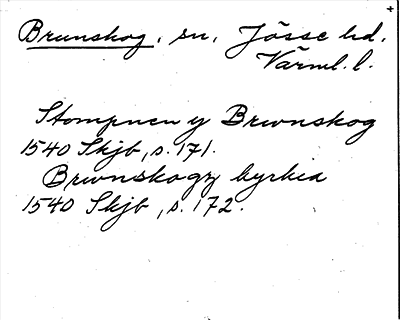 Brunskog, sn, Jösse hd,
Värml. l.
Stompnen y Brwnskog
1540 Skjb, s. 171.
Brwnskogz kyrkia
1540 Skjb, s. 172.